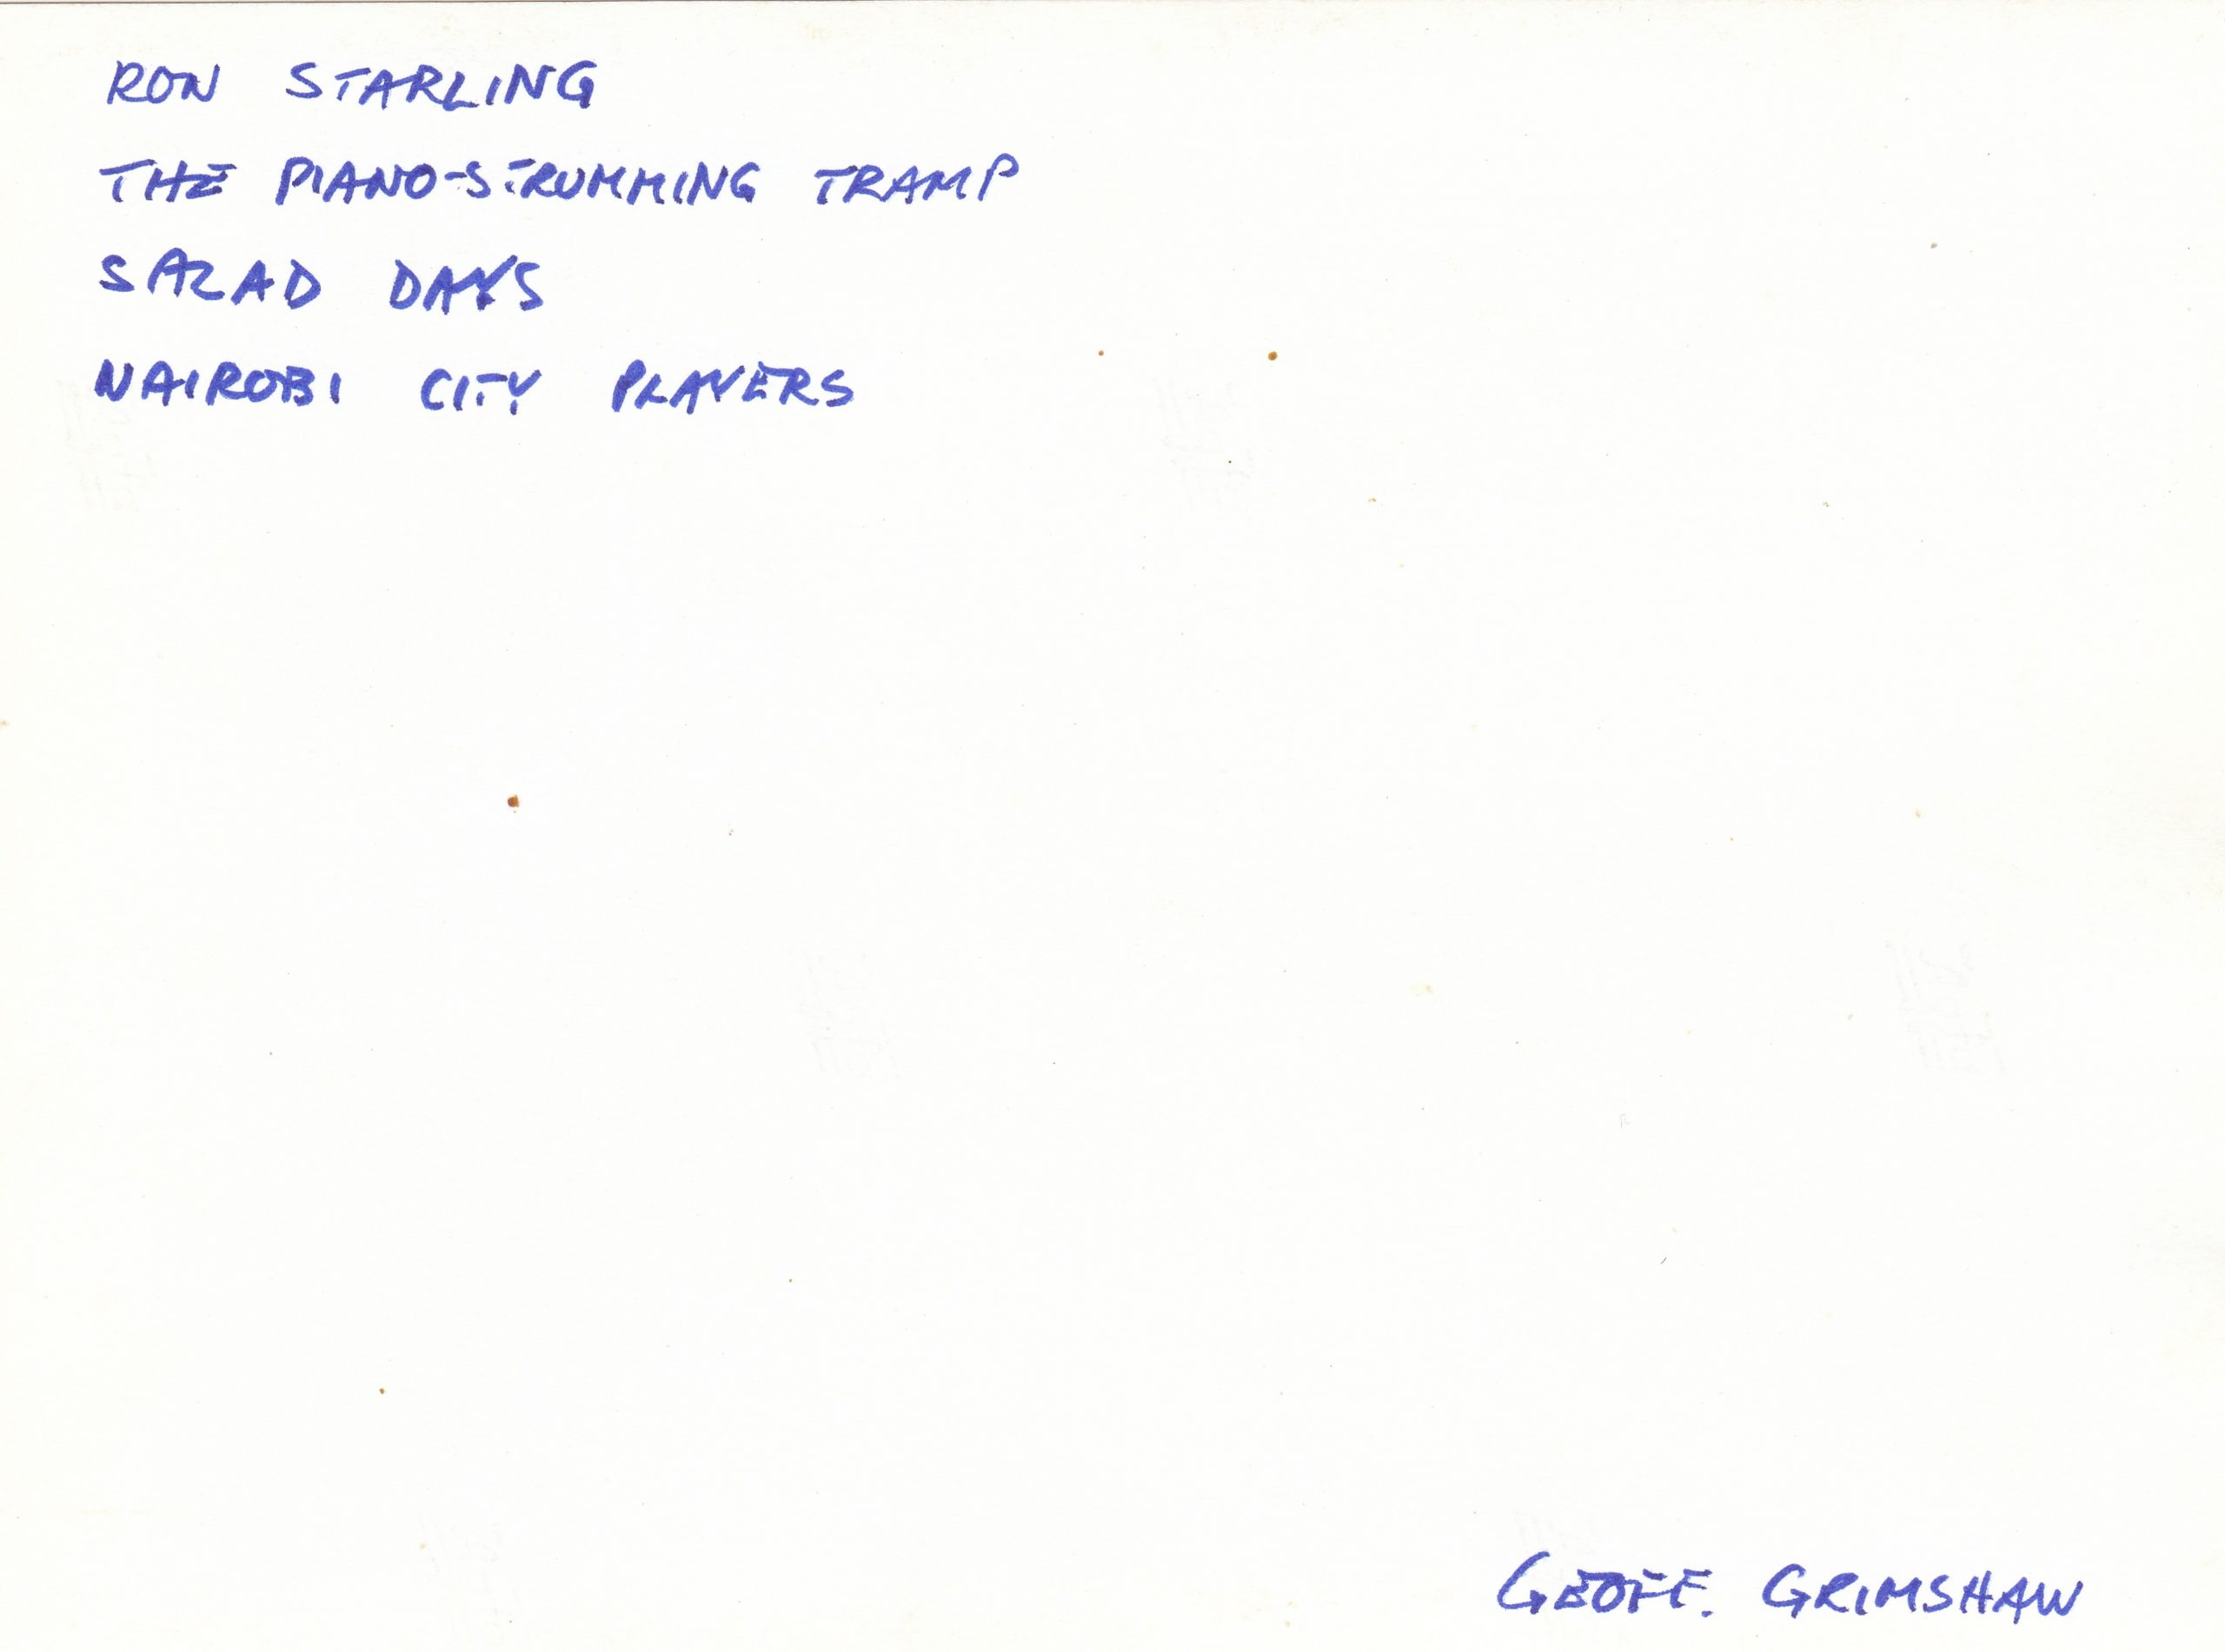 RON STARLING
THE PIANO-STRUMMING TRAMP
SALAD DAYS
NAIROBI CITY PLAYERS
GEOFF. GRIMSHAW